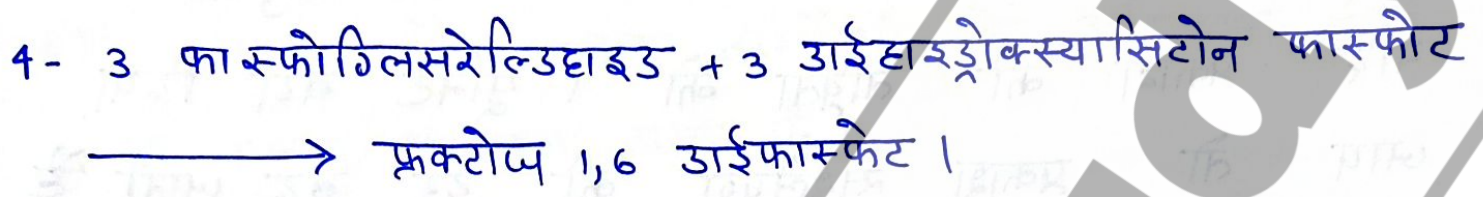 4- 3 फास्फोग्लिसरेल्डिहाइड + 3 डाईहाइड्रोक्स्यासिटोन फास्फोट
⟶ फ्रक्टोज 1,6 डाईफास्फेट ।